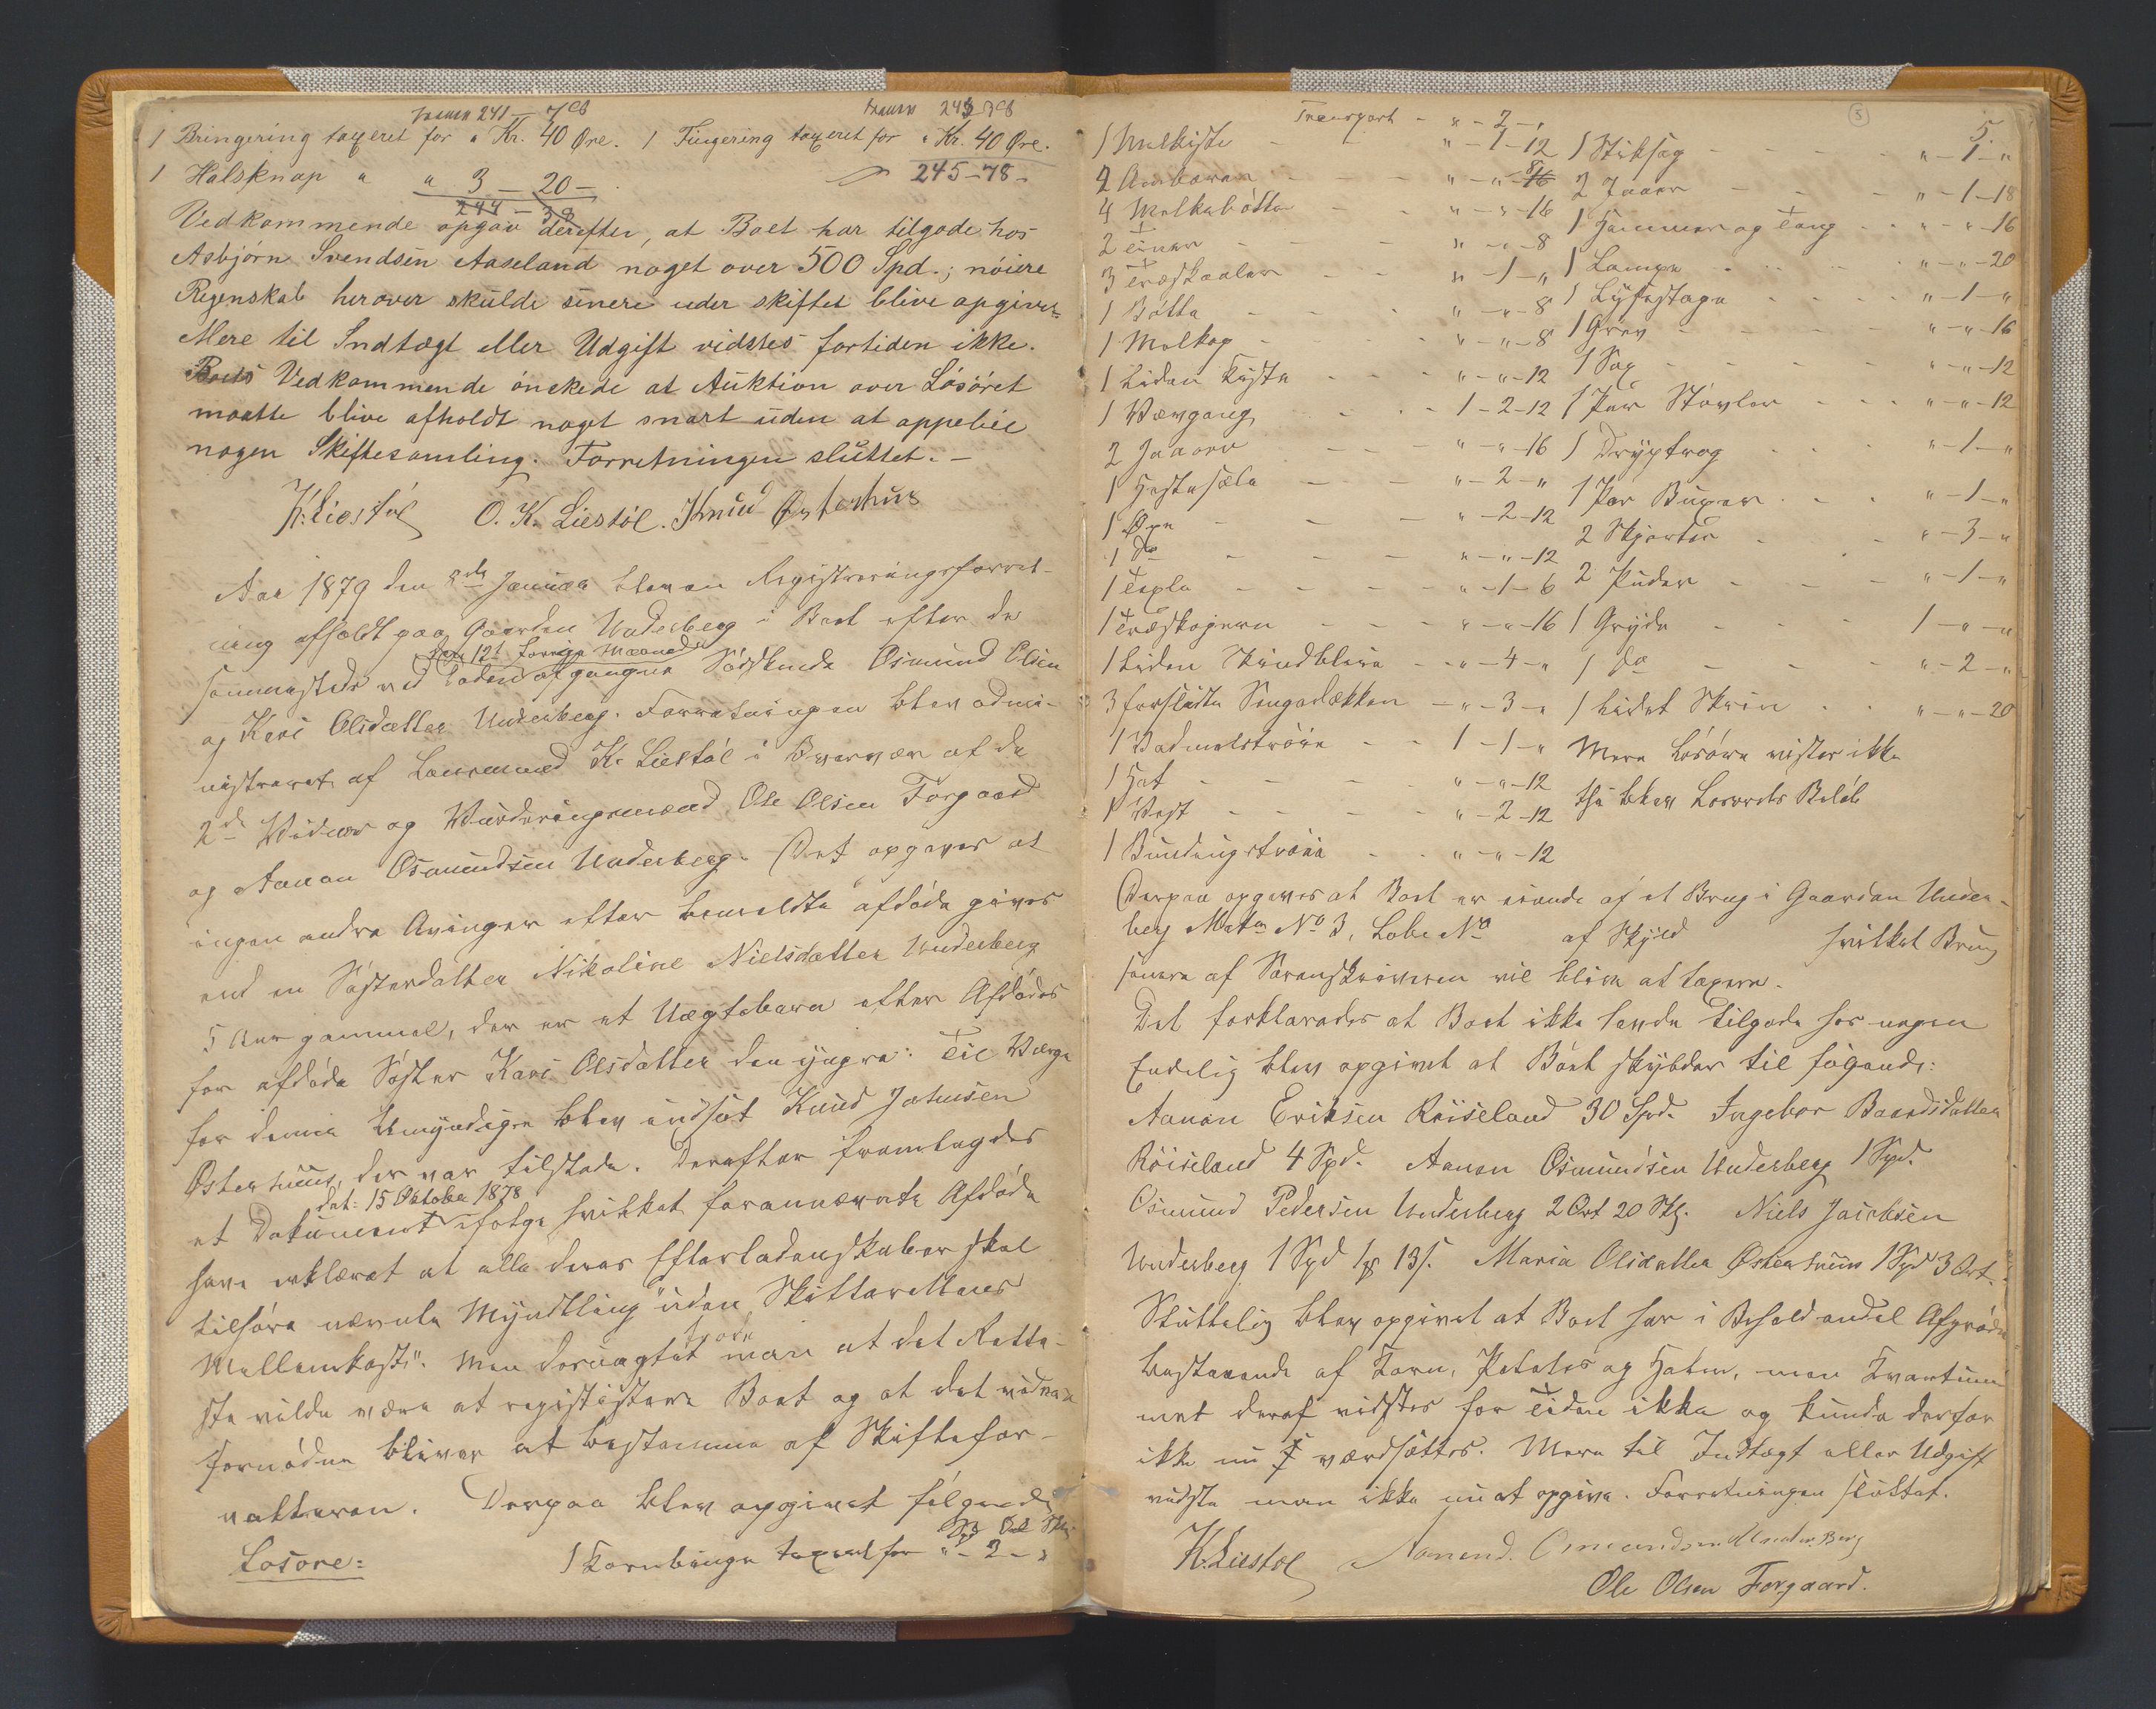 Transport 241 – 78 Transport 243 38
1 Bringering taxeret for " Kr. 40 Øre. 1 Fingering taxeret for " Kr. 40 Øre.
1 Halsknap " " 3 – 20 – 245 – 78 –
244 – 38
Vedkommende opgav derefter, at Boet har tilgode hos
Asbjørn Svendsen Aaseland noget over 500 Spd.; nøiere
Regenskab herover skulde senere uder skiftet blive opgivet.
Mere til Indtægt eller Udgift vidstes fortiden ikke.
Boets Vedkommende ønskede at Auktion over Løsøret
maatte blive afholdt noget snart uden at appebie
nogen Skiftesamling. Forretningen sluttet. –
K. Liestøl O. K. Liestøl. Knud Østerhus
Aar 1879 den Januar blev en Registreringsforret-
ning afholdt paa Gaarden Underberg i Boet efter de
sammesteds ved Døden afgangne Södskende Osmund Olsen
den 12t forrige Maaned
og Kari Olsdatter Underberg. Forretningen blev admi-
nistreret af Lensmand K. Liestøl i Overvær af de
2de Vidner og Vurderingsmænd Ole Olsen Forgaard
og Aanon Osmundsen Underberg. Det opgaves at
ingen andre Arvinger efter bemeldte afdøde gives
end en Søsterdatter Nikoline Nielsdatter Underberg
5 Aar gammel, der er et Uægtebarn efter Afdødes
for afdøde Søster Kari Olsdatter den yngre. Til Værge
for denne Umyndige blev indsat Knud Johnsen
Østerhuus, der var tilstede. Derefter fremlagdes
dat: 15 Oktober 1878
et Dokument ifølge hvilket forannævnte Afdøde
have erklæret at alle deres Efterladenskaber skal
tilhøre nævnte Myndtling "uden Skifterettens
Mellemkost". Men desuagtet troede man at det Rette-
ste vilde være at regististere Boet og at det videre
fornødne bliver at bestemme af Skiftefor-
valteren. Derpaa blev opgivet følgende
Spd Ort Sk.
Løsøre: 1 Kornbinge taxeret for " – 2 – "
5
Transport – " – 2 – "
1 Melkiste " – 1 – 12
2 Ambaren " – " – 16
4 Melkebøtter " – " – 16
2 Tiner " – " – 8
3 Træskaaler " – 1 – "
1 Bøtte " – " – 8
1 Melkop " – " – 8
1 Liden Kiste " – " – 12
1 Vævgang 1 – 2 – 12
2 Jaaer " – " – 16
1 Hestesæle " – 2 – "
1 Øxe " – 2 – 12
1 do " – " – 12
1 Texle " – 1 – 6
1 Træskojern " – " – 16
1 Liden Skindbleie " – 4 – "
3 forslidte Sengedækken " – 3 – "
1 Vadmelstrøie 1 – 1 – "
1 Hat " – " – 12
1 Vest " – 2 – 12
1 Bundingstrøie " – " – 12
1 Stiksag " – 1 – "
2 Jaaer " – 1 – 18
1 Hammer og Tang " – " – 16
1 Lampe " – " – 20
1 Lysestage " – 1 – "
1 Grev " – " – 16
1 Sag " – " – 12
1 Par Støvler " – " – 12
1 Dryptrog " – 1 – "
1 Par Buxer " – 1 – "
2 Skjorter " – 3 – "
2 Puder " – 1 – "
1 Gryde 1 – " – "
1 do " – 2 – "
1 Lidet Skrin " – " – 20
Mere Løsøre vistes ikke
Løsørets Beløb
Derpaa opgaves at Boet er eiende af et Brug i Gaarden Under-
berg Matr No 3, Løbe No af Skyld hvilket Brug
senere af Sorenskriveren vil blive at taxere.
Det forklaredes at Boet ikke havde tilgode hos nogen
Endelig blev opgivet at Boet skylder til følgende:
Aanon Eriksen Røiseland 30 Spd. Ingebor Baardsdatter
Røiseland 4 Spd. Aanon Osmundsen Underberg 1 Spd.
Osmund Pedersen Underberg 2 Ort 20 Sk. Niels Jacobsen
Underberg 1 Spd 13 s. Maria Olsdatter Østerhuus 1 Spd 3 Ort.
Sluttelig blev opgivet at Boet har i Behold endel Afgrøde
bestaaende af Korn, Poteter og Halm, men Kvantum-
met deraf vidstes for Tiden ikke og kunde derfor
ikke nu værdsættes. Mere til Indtægt eller Udgift
vidste man ikke nu at opgive. Forretningen sluttet.
K. Liestøl Aanond. Osmundsen Underberg
Ole Olsen Forgaard.